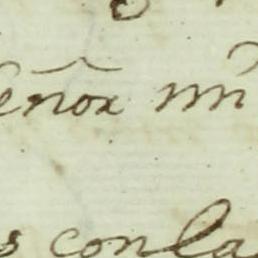 eñor mi
s con la